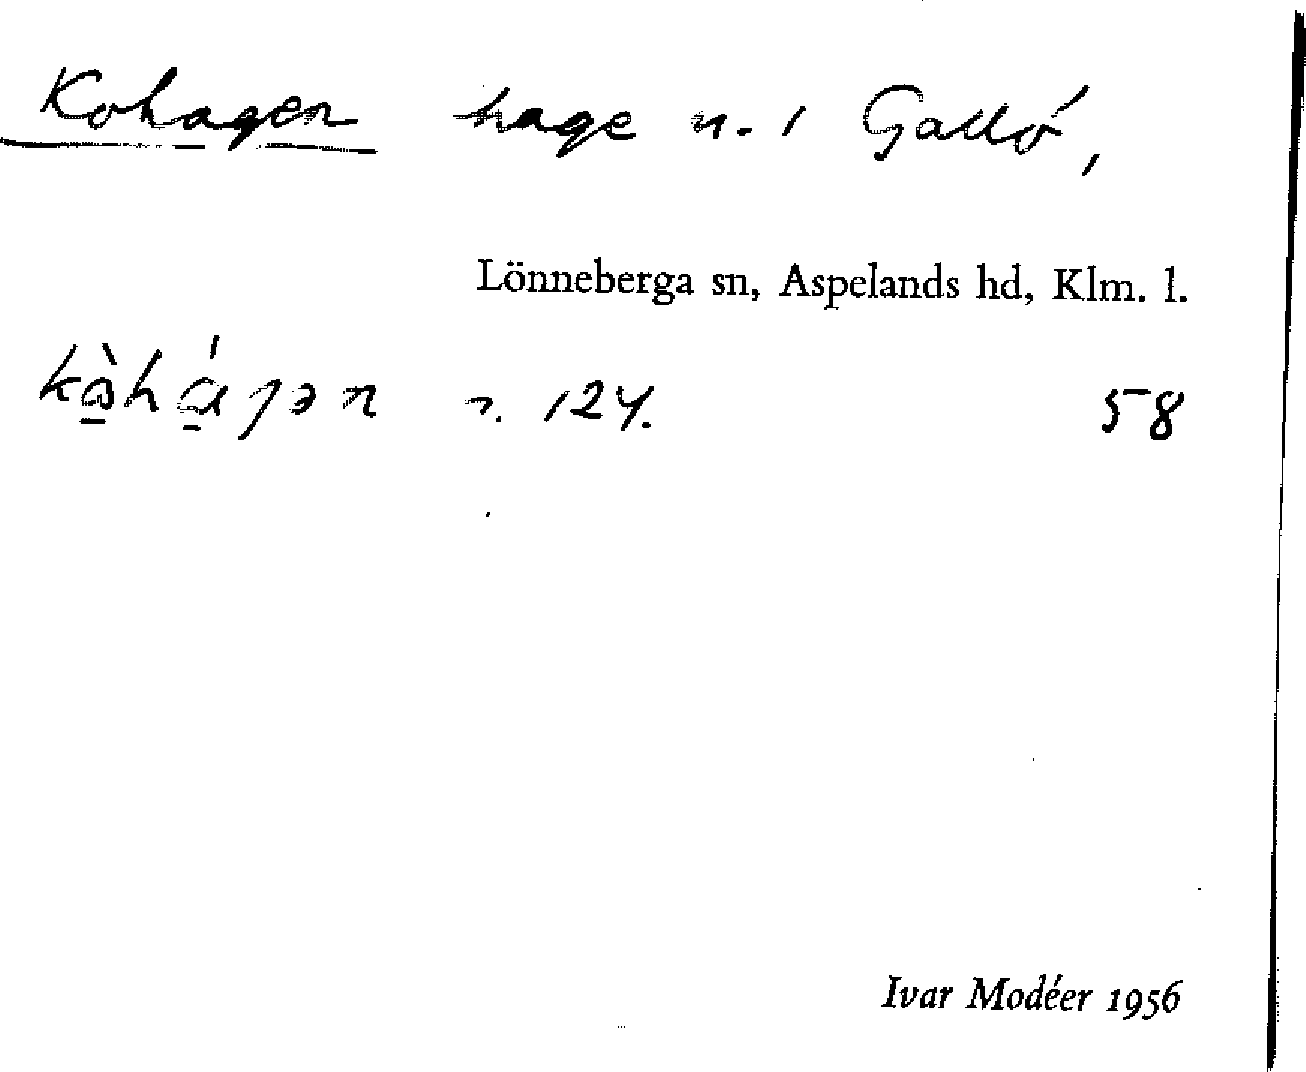 Kohagen hage n. 1 Gallö,
Lönneberga sn, Aspelands hd, Klm. l.
n. 124. 58
Ivar Modéer 1956